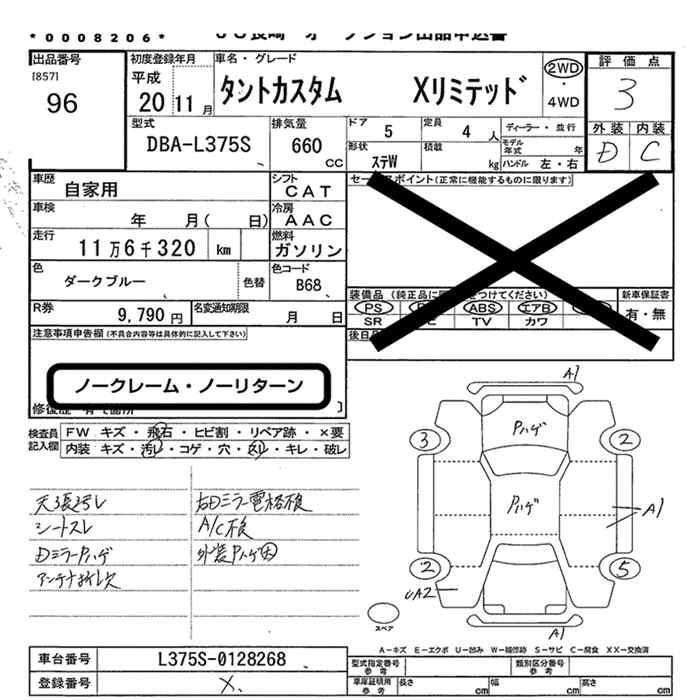 *0008206*
出品番号
[857]
96
初度登録年月
平成
20 11月
車名・グレード
タントカスタム Xリミテッド
2WD
・
4WD
評価点
3
外装 内装
D C
型式
DBA-L375S
排気量
660
CC
ドア 5
定員 4 人
ディーラー・並行
モデル年式 年
形状 ステW
積載 kg
ハンドル 左・右
車歴 自家用
シフト CAT
車検 年 月( 日)
冷房 AAC
走行 11万6千320 km
燃料 ガソリン
色 ダークブルー
色替
色コード B68
R券 9,790円
名変通知期限 月 日
注意事項申告欄(不具合内容等は具体的に記入して下さい)
ノークレーム・ノーリターン
(正常に機能するものに限ります)
装備品
PS ABS エアB
SR TV カワ
新車保証書
有・無
検査員記入欄
FW キズ・飛石・ヒビ割・リペア跡・×要
内装 キズ・汚レ・コゲ・穴・スレ・キレ・破レ
天張汚レ
シートスレ
DミラーPハゲ
アンテナ折レ欠
右Dミラー電格検
A/C検
外装Pハゲ大
A1
Pハゲ
3
2
Pハゲ
A1
2
5
UA2
A1
スペア
A-キズ E-エクボ U-凹み W-補修跡 S-サビ C-腐食 XX-交換済
車台番号 L375S-0128268
登録番号 X.
型式指定番号 参考
類別区分番号 参考
車庫証明用 参考
長さ cm
幅 cm
高さ cm